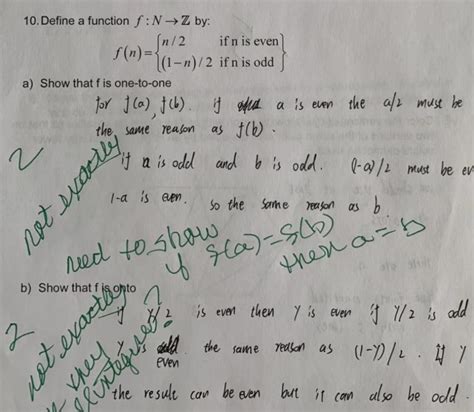 10. Define a function f : N → Z by:
f(n) = { n/2 if n is even
(1−n)/2 if n is odd }
a) Show that f is one-to-one
for f(a), f(b). if a is even the a/2 must be
the same reason as f(b).
2
not exactly
if a is odd and b is odd. (1-a)/2 must be ev
1-a is even. so the same reason as b
need to show
if f(a)=f(b)
then a=b
b) Show that f is onto
2
not exactly
if Y/2 is even then Y is even if Y/2 is odd
Y is even the same reason as (1-Y)/2. If Y
they
integers?
the result can be even but it can also be odd.